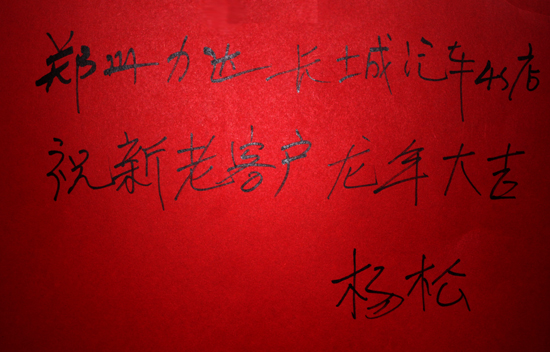 郑州力达长城汽车4S店
祝新老客户龙年大吉
杨松